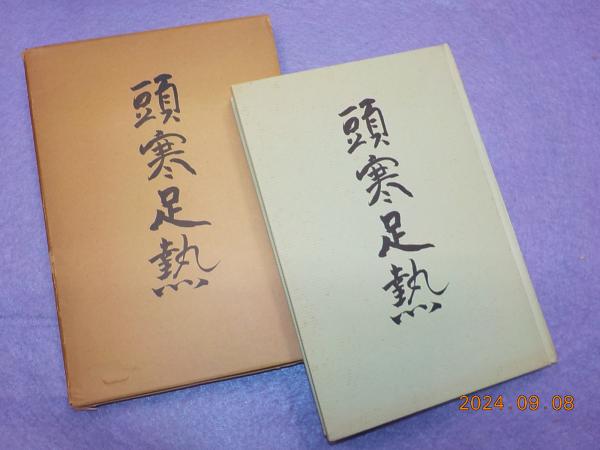 頭寒足熱
頭寒足熱
2024.09.08